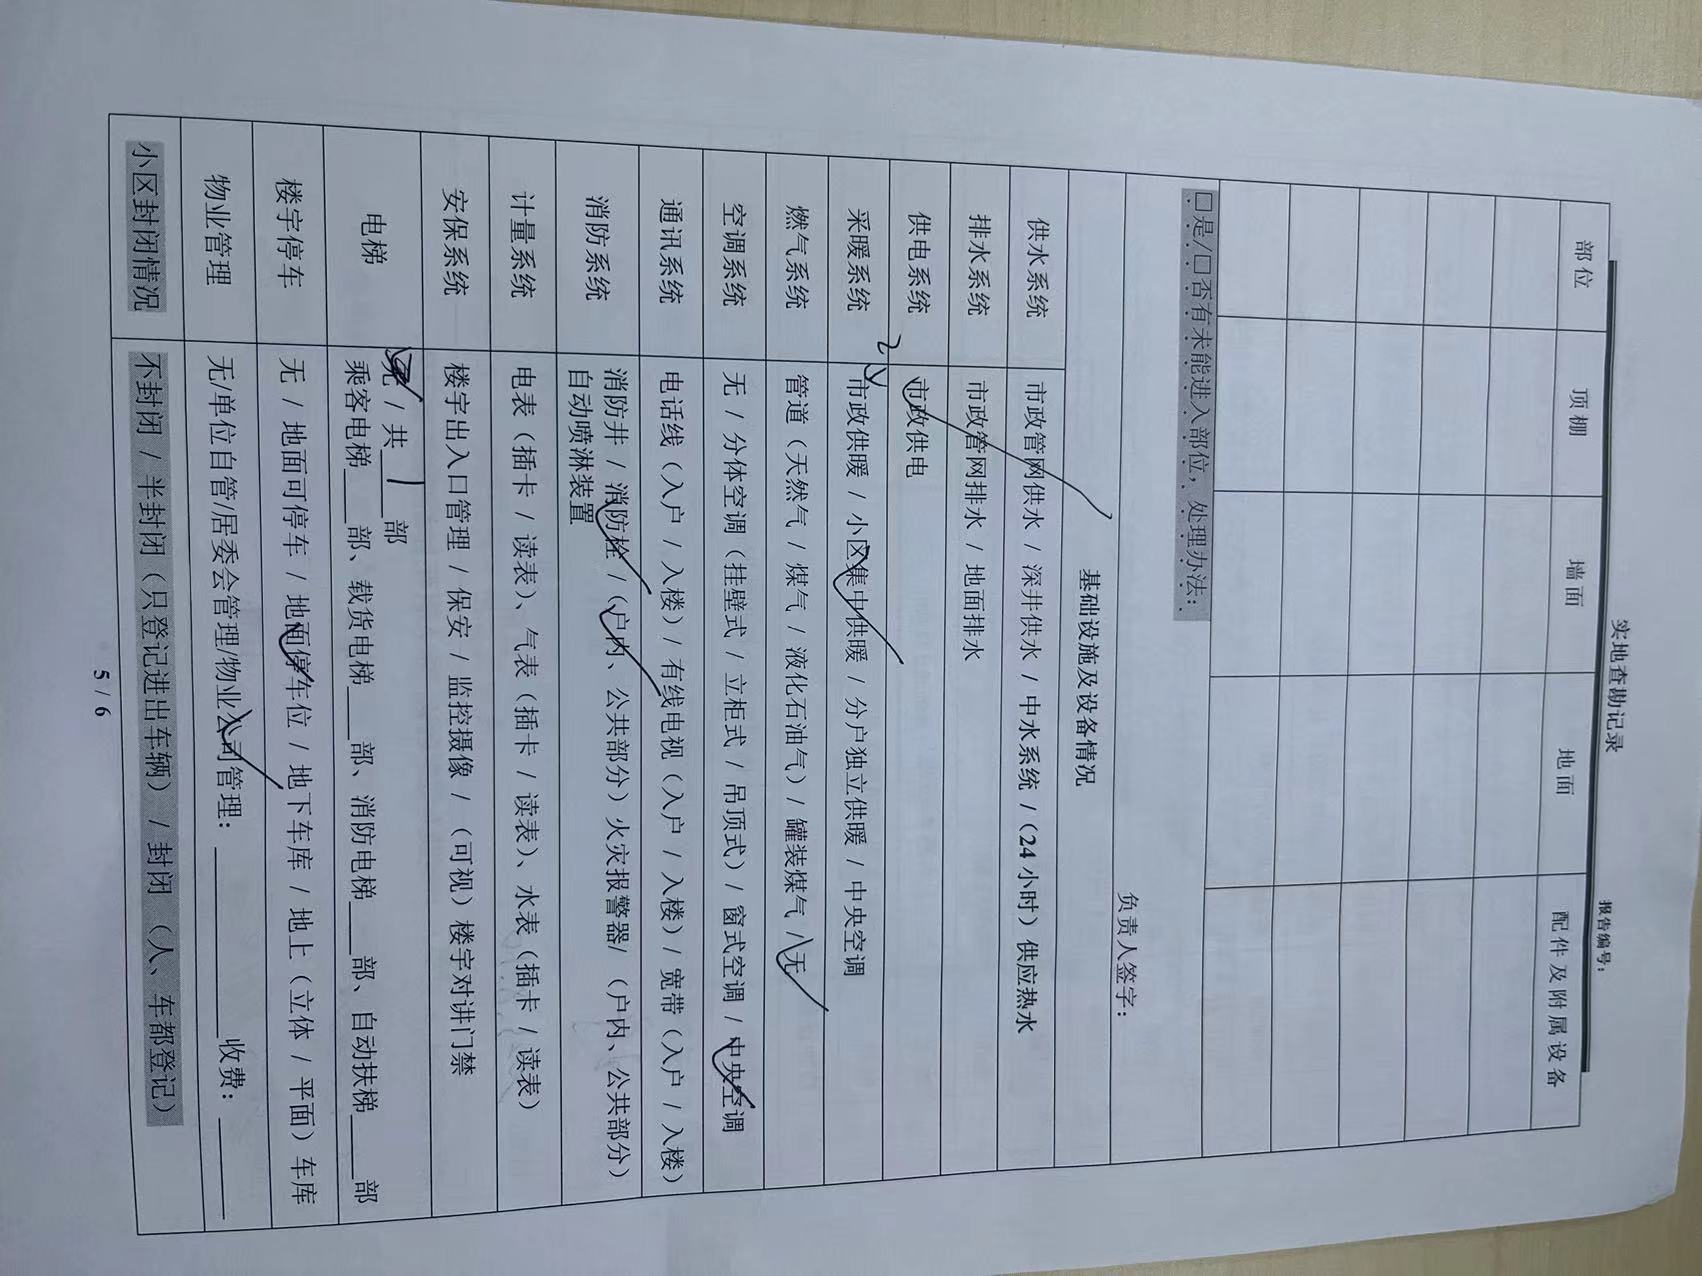 实地查勘记录
报告编号：
部位 顶棚 墙面 地面 配件及附属设备
□是/□否有未能进入部位，处理办法：
负责人签字：
基础设施及设备情况
供水系统 市政管网供水 / 深井供水 / 中水系统 / （24 小时）供应热水
排水系统 市政管网排水 / 地面排水
供电系统 市政供电
采暖系统 市政供暖 / 小区集中供暖 / 分户独立供暖 / 中央空调
燃气系统 管道（天然气 / 煤气 / 液化石油气）/ 罐装煤气 / 无
空调系统 无 / 分体空调（挂壁式 / 立柜式 / 吊顶式）/ 窗式空调 / 中央空调
通讯系统 电话线（入户 / 入楼）/ 有线电视（入户 / 入楼）/ 宽带（入户 / 入楼）
消防系统 消防井 / 消防栓 /（户内、公共部分）火灾报警器/ （户内、公共部分）
自动喷淋装置
计量系统 电表（插卡 / 读表）、气表（插卡 / 读表）、水表（插卡 / 读表）
安保系统 楼宇出入口管理 / 保安 / 监控摄像 / （可视）楼宇对讲门禁
电梯 无 / 共 1 部
乘客电梯___部、载货电梯___部、消防电梯___部、自动扶梯____部
楼宇停车 无 / 地面可停车 / 地面停车位 / 地下车库 / 地上（立体 / 平面）车库
物业管理 无/单位自管/居委会管理/物业公司管理：____________收费：______
小区封闭情况 不封闭 / 半封闭（只登记进出车辆） / 封闭 （人、车都登记）
5 / 6